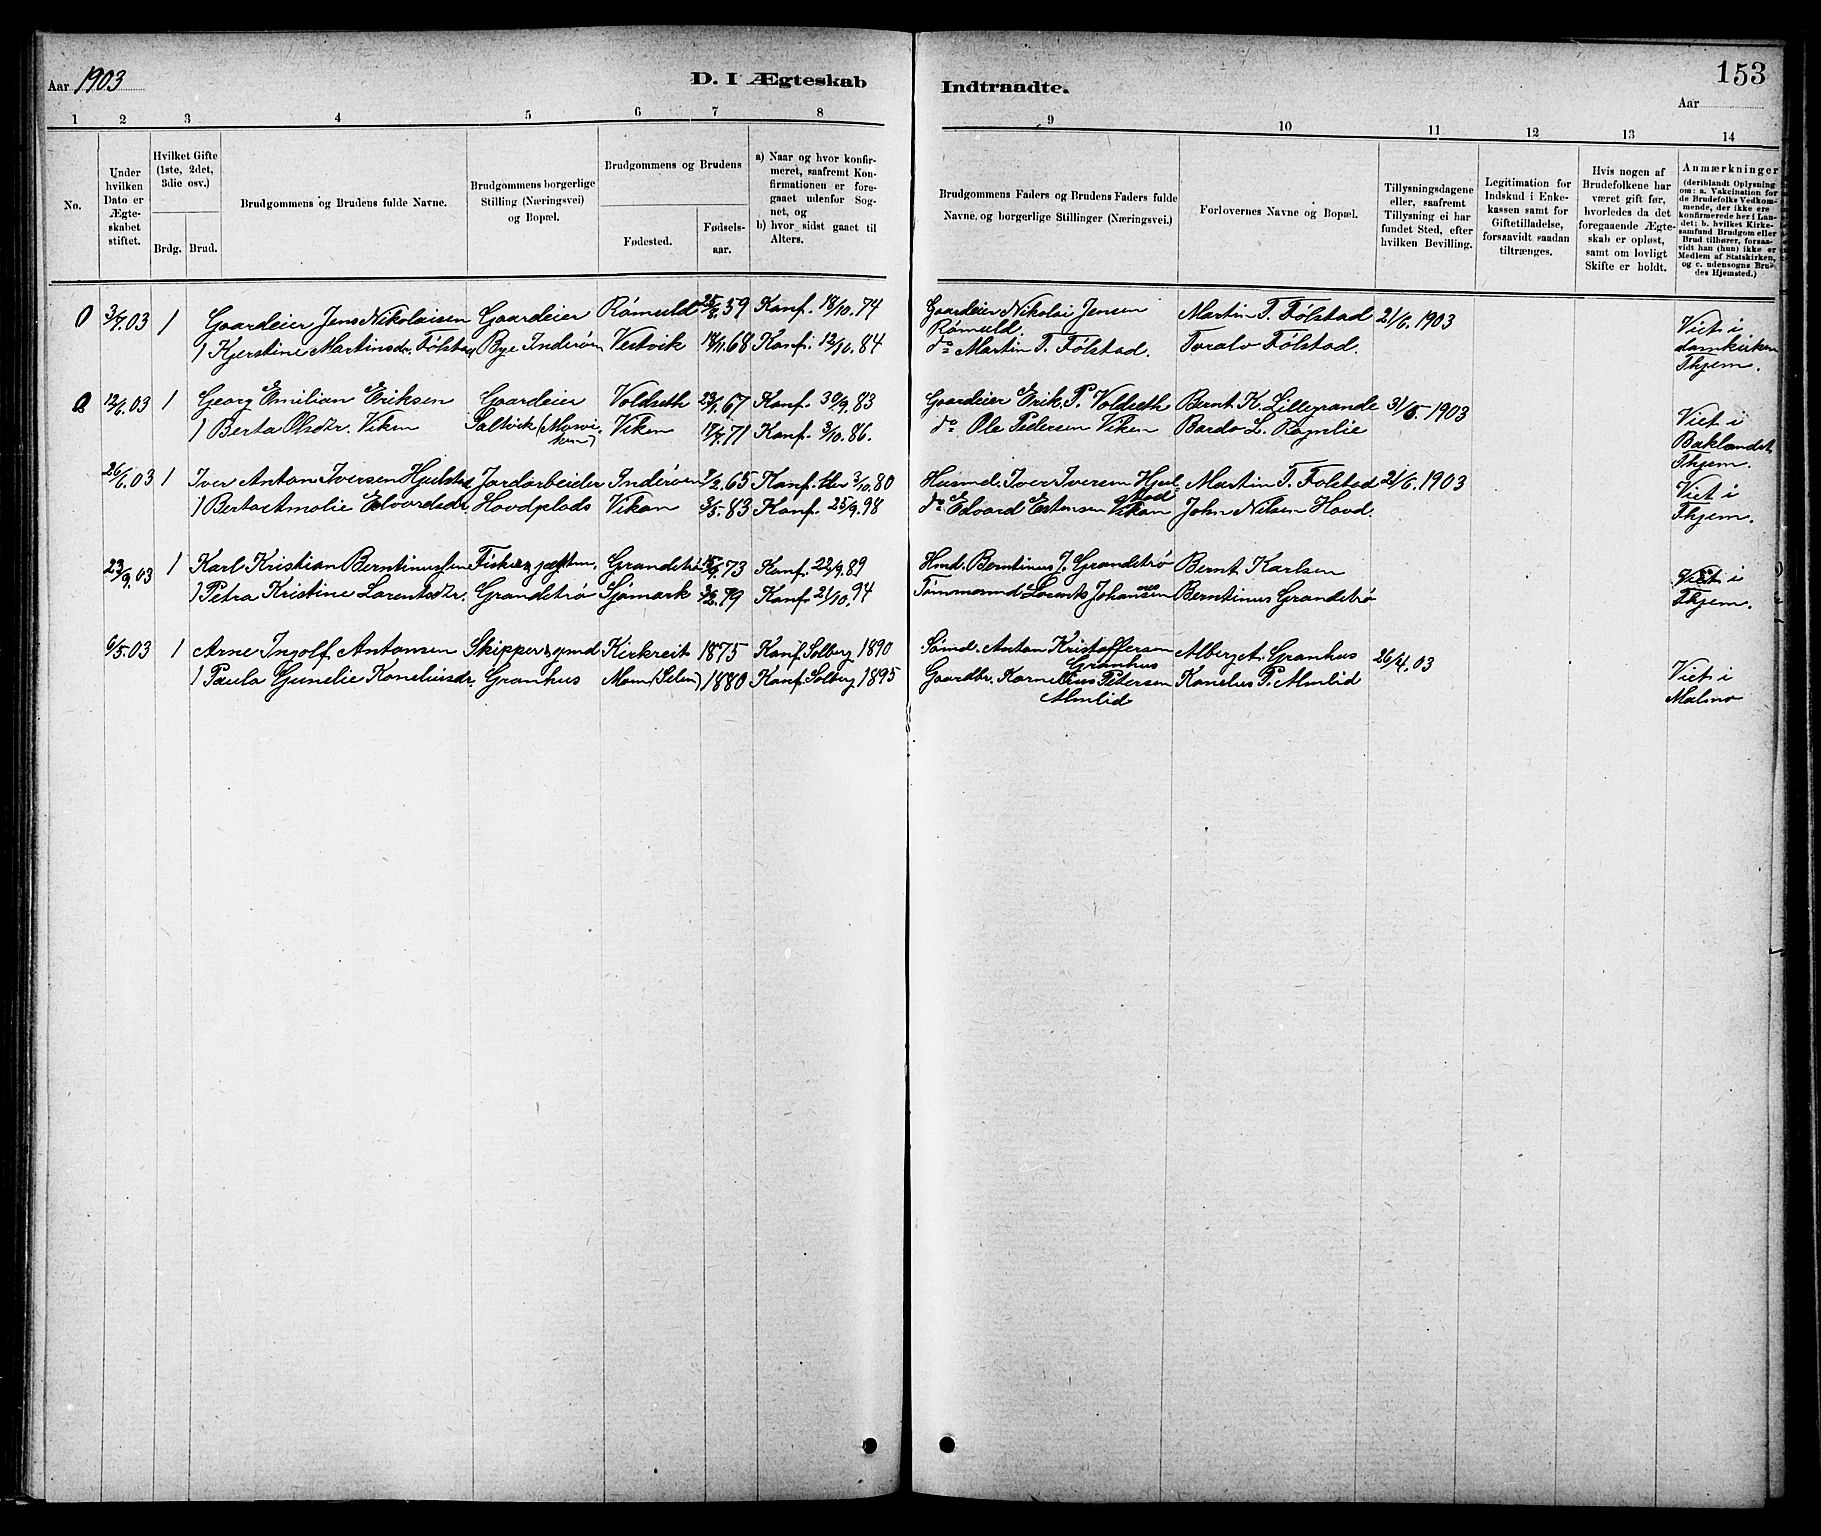 Aar 1903
D. I Ægteskab
Indtraadte.
153
Aar
1 2 3 4 5 6 7 8 9 10 11 12 13 14
No.
Under hvilken Dato er Ægte- skabet stiftet.
Hvilket Gifte (1ste, 2det, 3die osv.)
Brdg. Brud.
Brudgommens og Brudens fulde Navne.
Brudgommens borgerlige Stilling (Næringsvei) og Bopæl.
Brudgommens og Brudens
Fødested.
Fødsels- aar.
a) Naar og hvor konfir- meret, saafremt Kon- firmationen er fore- gaaet udenfor Sog- net, og
b) hvor sidst gaaet til Alters.
Brudgommens Faders og Brudens Faders fulde Navne, og borgerlige Stillinger (Næringsvei.)
Forlovernes Navne og Bopæl.
Tillysningsdagene eller, saafremt Tillysning ei har fundet Sted, efter hvilken Bevilling.
Legitimation for Indskud i Enke- kassen samt for Giftetilladelse, forsaavidt saadan tiltrænges.
Hvis nogen af Brudefolkene har været gift før, hvorledes da det foregaaende Ægte- skab er opløst, samt om lovligt Skifte er holdt.
Anmærkninger (deriblandt Oplysning om: a. Vakcination for de Brudefolks Vedkom- mende, der ikke ere konfirmerede her i Lan- det; b. hvilket Kirke- samfund Brudgom eller Brud tilhører, forsaa- vidt han (hun) ikke er Medlem af Statskirken, og c. udensogns Bru- des Hjemsted.)
0 3/7.03 1 Gaardeier Jens Nikolaisen Gaardeier Rømuld 25/8.59 Konf. 18/10.74 Gaardeier Nikolai Jensen Martin T. Følstad 21/6.1903 Viet i
Rømuld.
1 Kjerstine Martinsdr. Følstad Bye Inderøen Vestvik 14/11.68 Konf. 12/10.84 do Martin T. Følstad. Toralv Følstad. domkirken
Thjem.
0 12/6.03 1 Georg Emilian Eriksen Gaardeier Voldseth 23/1.67 Konf. 30/9.83 Gaardeier Erik P. Voldseth Bernt K. Lillegrande 31/5.1903 Viet i
1 Berta Olsdtr. Viken Saltvik (Mosvi- ken) Viken 17/7.71 Konf. 3/10.86. do Ole Pedersen Viken Bardo L. Ramlie Baklandet
Thjem.
26/6.03 1 Iver Anton Iversen Hjulstad Jordarbeider Inderøen 7/2.65 Konf. 3/10.80 Husmd. Iver Iversen Hjul- stad Martin T. Følstad 21/6.1903 Viet i
1 Berta Amalie Edvardsdr. Hovdplads Vikan 3/5.83 Konf. 25/9.98 do Edvard Estensen Vikan John Nilsen Hovd. Thjem.
23/9.03 1 Karl Kristian Berntinussen Fisker Grandetrø 15/9.73 Konf. 22/9.89 Hmd. Berntinus J. Grandetrø Bernt Karlsen Viet i
1 Petra Kristine Larentsdtr. Grandetrø Sjømark 3/2.79 Konf. 21/10.94 Tømmermd Lorents Johansen Berntinus Grandetrø Thjem.
6/5.03 1 Arne Ingolf Antonsen Skipper & gmd Kirkreit 1875 Konf. Solberg 1890 Sømd. Anton Kristoffersen Granhus Albert A. Granhus 26/4.03 Viet i
1 Paula Gunelie Koneliusdr. Granhus Mom (Selen) 1880 Konf. Solberg 1895 Gaardbr. Kornelius Petersen Almlid Konelius P. Almlid Malmo